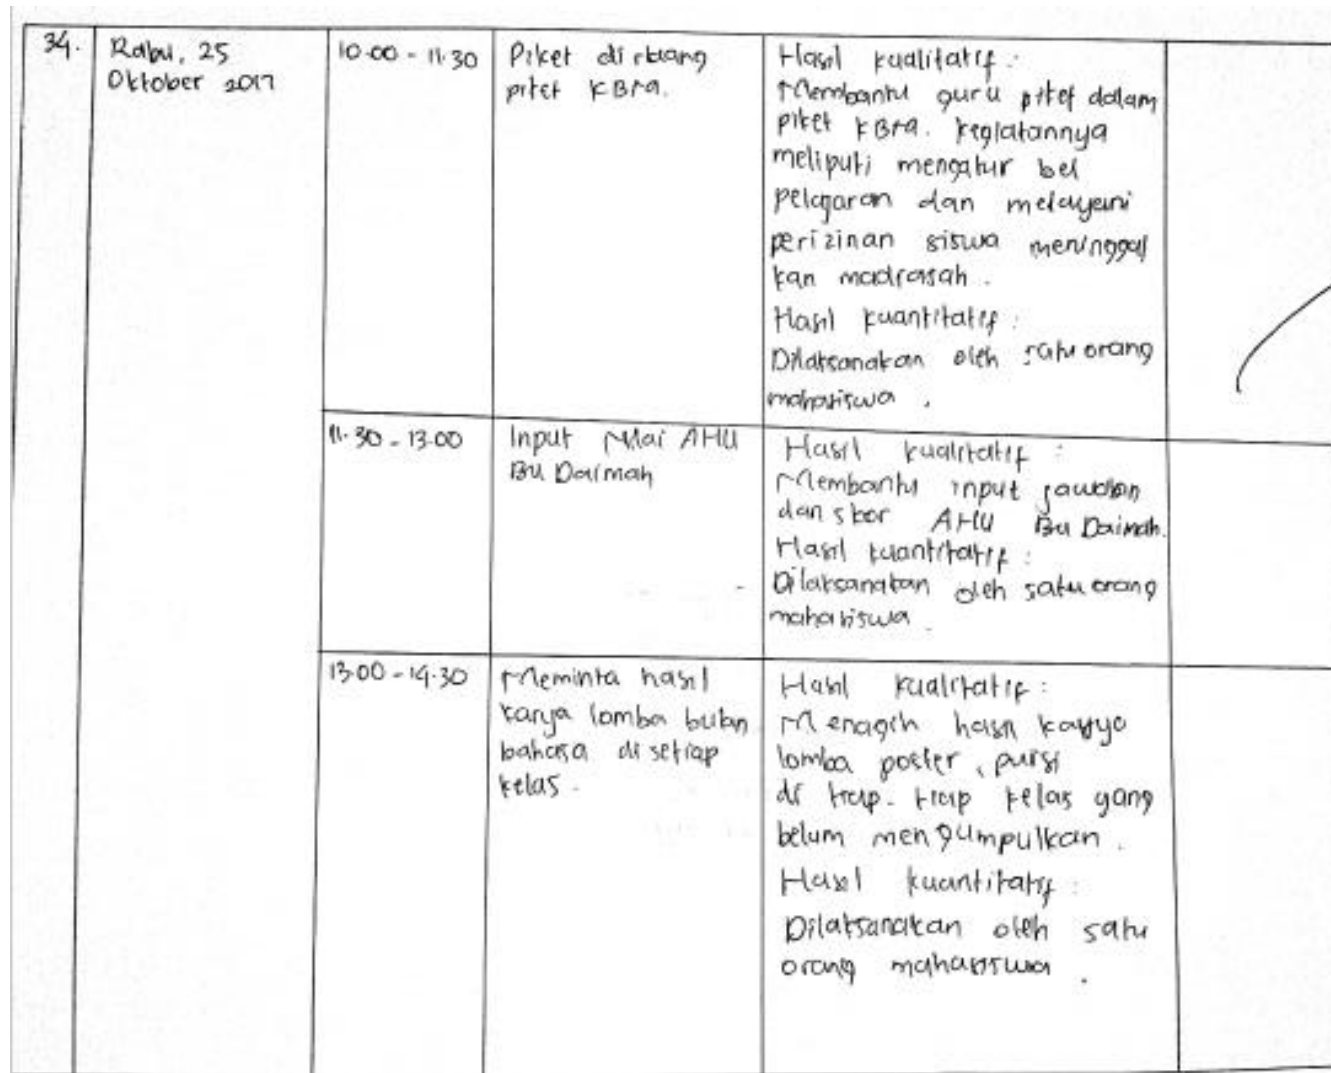 34.
Rabu, 25
Oktober 2017
10.00 - 11.30
Piket di ruang
piket KBM.
Hasil kualitatif :
Membantu guru piket dalam
piket KBM. Kegiatannya
meliputi mengatur bel
pelajaran dan melayani
perizinan siswa meninggal
kan madrasah.
Hasil kuantitatif :
Dilaksanakan oleh satu orang
mahasiswa.
11.30 - 13.00
Input Nilai AHU
Bu Daimah
Hasil kualitatif :
Membantu input jawaban
dan skor AHU Bu Daimah.
Hasil kuantitatif :
Dilaksanakan oleh satu orang
mahasiswa.
13.00 - 14.30
Meminta hasil
karya lomba bulan
bahasa di setiap
kelas.
Hasil kualitatif :
Menagih hasil karya
lomba poster, puisi
di tiap-tiap kelas yang
belum mengumpulkan.
Hasil kuantitatif :
Dilaksanakan oleh satu
orang mahasiswa.